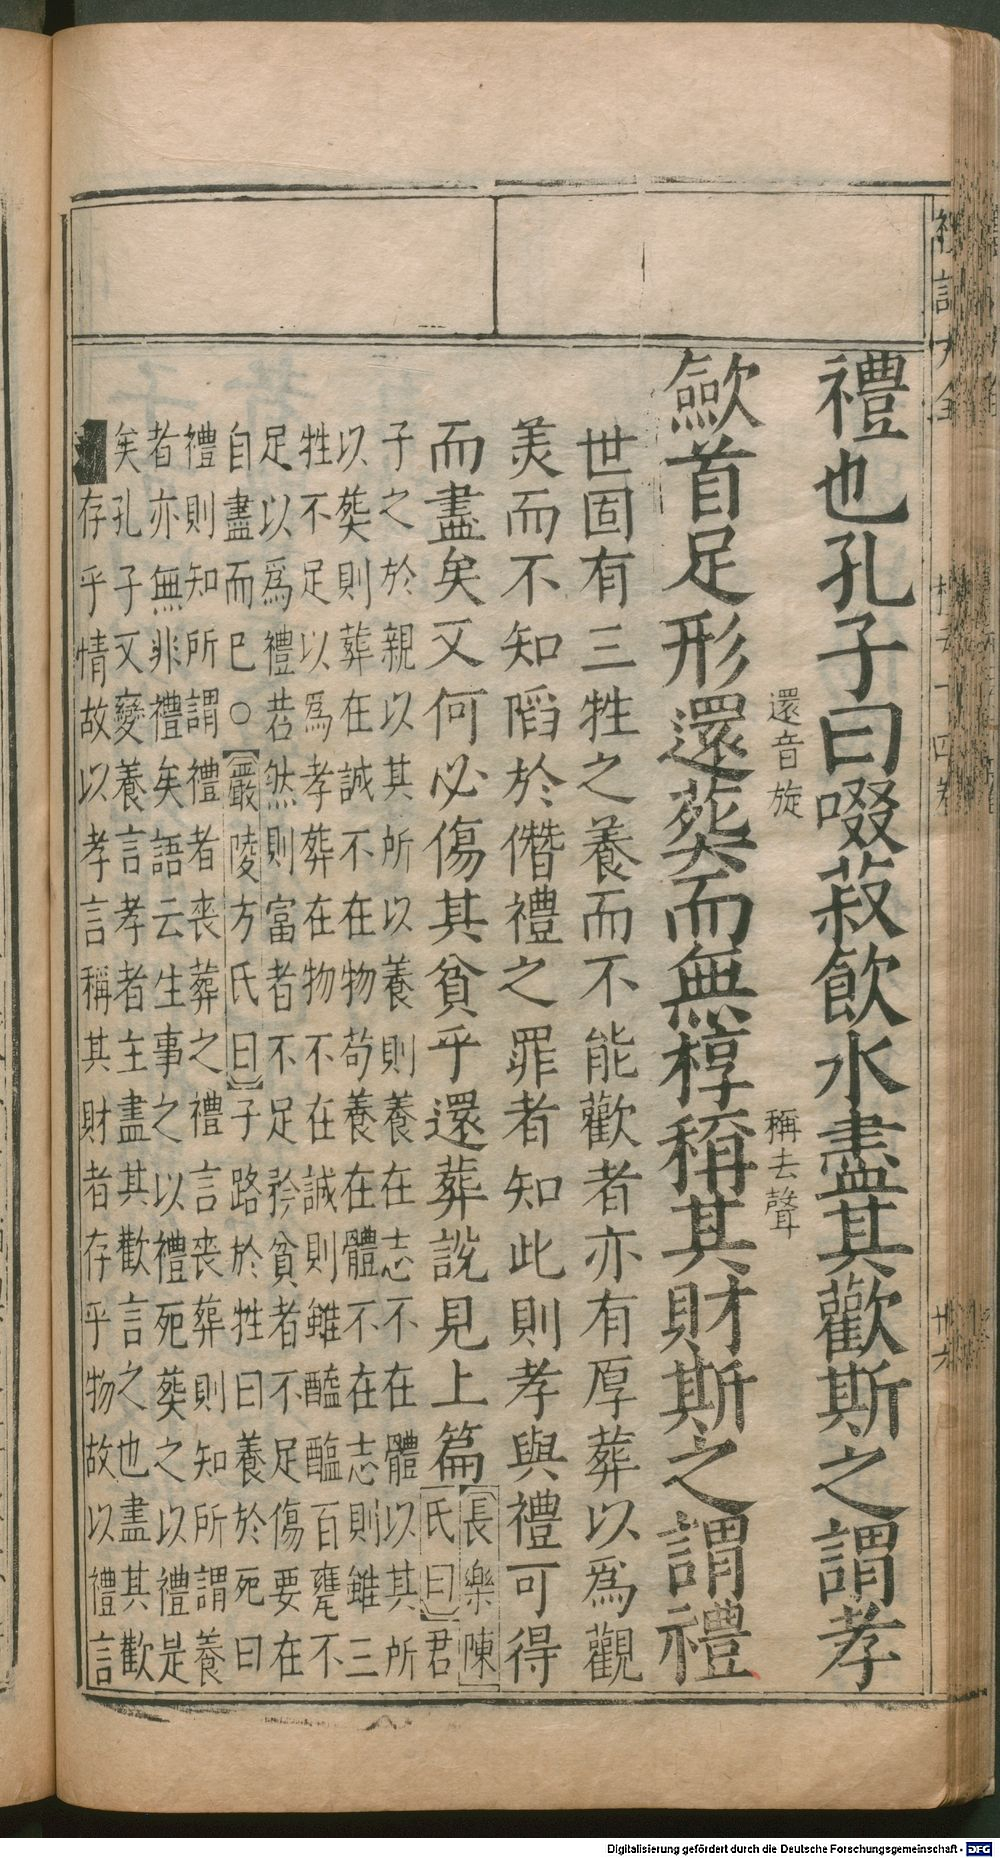 禮也孔子曰啜菽飲水盡其歡斯之謂孝
還音旋
稱去聲
歛首足形還葬而無椁稱其財斯之謂禮
世固有三牲之養而不能歡者亦有厚葬以爲觀
美而不知䧟於僭禮之罪者知此則孝與禮可得
而盡矣又何必傷其貧乎還葬說見上篇
長樂陳
氏曰君
子之於親以其所以養則養在志不在體以其所
以葬則葬在誠不在物苟養在體不在志則雖三
牲不足以爲孝葬在物不在誠則雖醯醢百甕不
足以爲禮若然則富者不足矜貧者不足傷要在
自盡而已○嚴陵方氏曰子路於牲曰養於死曰
禮則知所謂禮者喪葬之禮言喪葬則知所謂養
者亦無非禮矣語云生事之以禮死葬之以禮是
矣孔子又變養言孝者主盡其歡言之也盡其歡
存乎情故以孝言稱其財者存乎物故以禮言
Digitalisierung gefördert durch die Deutsche Forschungsgemeinschaft - DFG